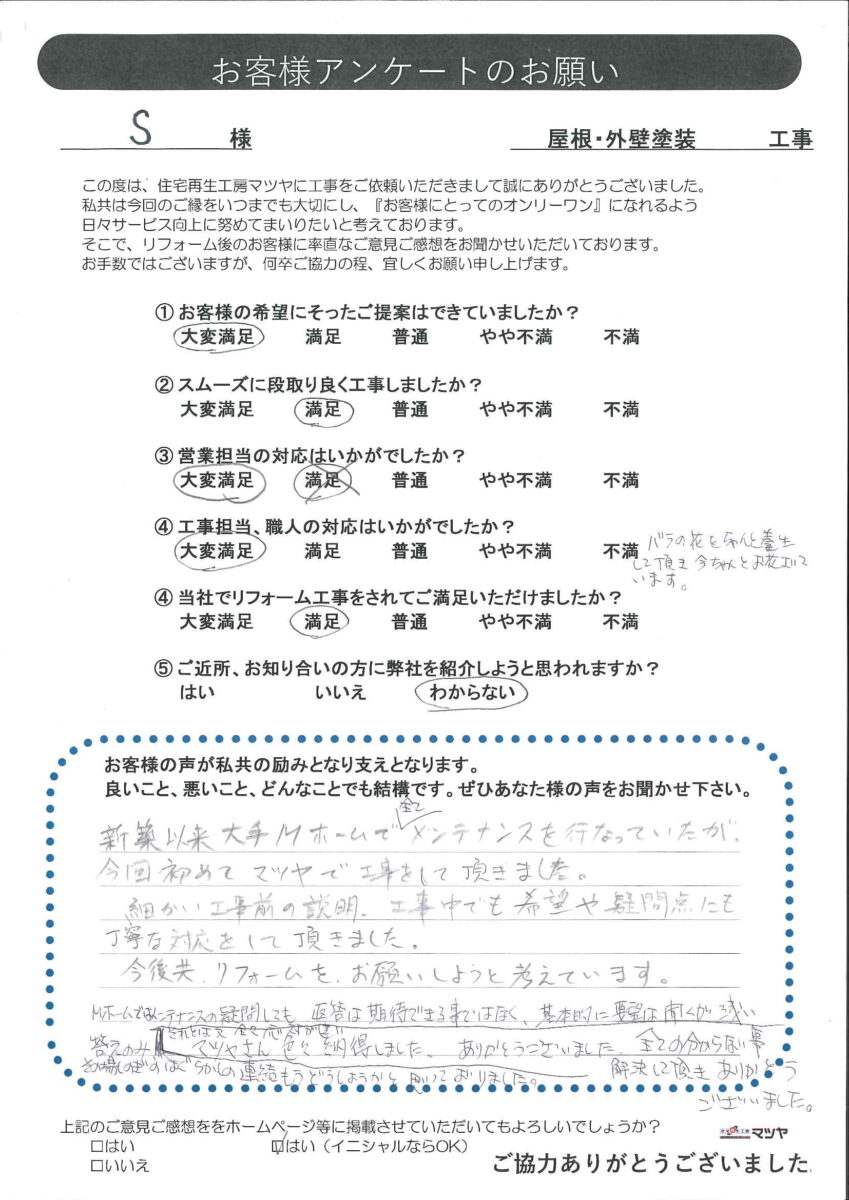 お客様アンケートのお願い
S 様 屋根・外壁塗装 工事
この度は、住宅再生工房マツヤに工事をご依頼いただきまして誠にありがとうございました。
私共は今回のご縁をいつまでも大切にし、『お客様にとってのオンリーワン』になれるよう
日々サービス向上に努めてまいりたいと考えております。
そこで、リフォーム後のお客様に率直なご意見ご感想をお聞かせいただいております。
お手数ではございますが、何卒ご協力の程、宜しくお願い申し上げます。
① お客様の希望にそったご提案はできていましたか?
大変満足 満足 普通 やや不満 不満
② スムーズに段取り良く工事しましたか?
大変満足 満足 普通 やや不満 不満
③ 営業担当の対応はいかがでしたか?
大変満足 満足 普通 やや不満 不満
④ 工事担当、職人の対応はいかがでしたか?
大変満足 満足 普通 やや不満 不満
バラの花をちゃんと養生
して頂き 今ちゃんとお花
います。
④ 当社でリフォーム工事をされてご満足いただけましたか?
大変満足 満足 普通 やや不満 不満
⑤ ご近所、お知り合いの方に弊社を紹介しようと思われますか?
はい いいえ わからない
お客様の声が私共の励みとなり支えとなります。
良いこと、悪いこと、どんなことでも結構です。ぜひあなた様の声をお聞かせ下さい。
全て
新築以来 大手Mホームで メンテナンスを行なっていたが、
今回初めて マツヤで 工事をして頂きました。
細かい工事前の説明、工事中でも希望や疑問点にも
丁寧な対応をして頂きました。
今後共、リフォームを、お願いしようと考えています。
Mホームではメンテナンスの疑問しても 返答は期待できる事ではなく、基本的に要望は聞くが 浅い
答えのみ
それとは 全く応対が違い
マツヤさん 色々 納得しました。ありがとうございました。全ての分からない事
その場しのぎのはぐらかしの連続 もうどうしようかと おりました。
解決して頂き ありがとう
ございました。
上記のご意見ご感想ををホームページ等に掲載させていただいてもよろしいでしょうか?
□はい ☑はい(イニシャルならOK)
□いいえ
マツヤ
ご協力ありがとうございました。